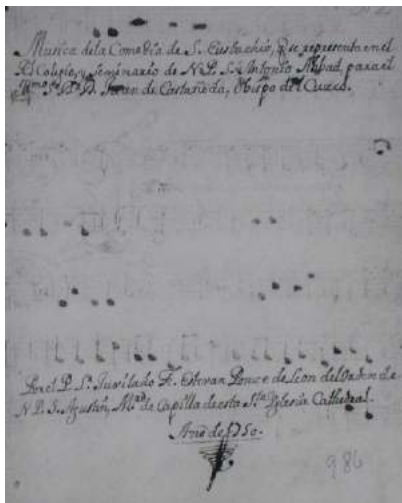 Musica dela Comedia de S. Eustachio, q̃ se representa en el
Rl Colegio, y Seminario de N.P. Sn Antonio Abbad, para el
Yllmo Sr Dr D. Juan de Castañeda, Obispo del Cuzco.
Por el P. Lr Juvilado Fr. Estevan Ponce de Leon del Orden de
N.P.S. Agustin, Mro de Capilla de esta Sta Yglesia Cathedral.
Ano de 1750.
986